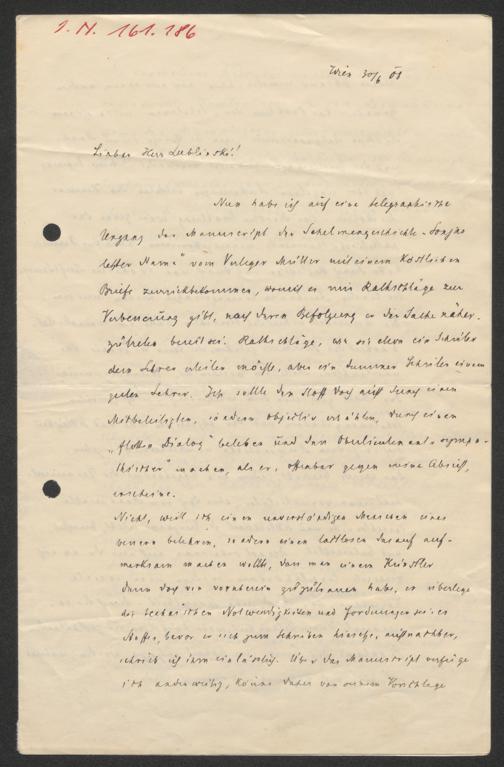 I. N. 161.186
Wien 30/6 08
Lieber Herr Lublinski!
Nun habe ich auf eine telegraphische
Urgenz das Manuscript der Schelmengeschichte „Sonjas
letzter Name" vom Verleger Müller mit einem köstlichen
Briefe zurückbekommen, worin er mir Ratschläge zur
Verbesserung gibt, nach deren Befolgung er der Sache näher-
zutreten bereit sei. Ratschläge, wie sie eben ein Schüler
dem Lehrer erteilen möchte, aber ein dummer Schüler einem
guten Lehrer. Ich sollte den Stoff doch nicht durch einen
Mitbeteiligten, sondern objectiv erzählen, durch einen
„flotten Dialog" beleben und den Oberlieutenant „sympa-
thischer" machen, als er, offenbar gegen meine Absicht,
erscheine.
Nicht, weil ich einen unverständigen Menschen eines
bessern belehren, sondern einen taktlosen darauf auf-
merksam machen wollte, dass man einem Künstler
denn doch von vornherein zuzutrauen habe, er überlege
die technischen Notwendigkeiten und Forderungen seines
Stoffes, bevor er sich zum Schreiben hinsetze, und nachher,
schrieb ich ihm einlässlich. Über das Manuscript verfüge
ich anderweitig, könne daher von seinem Vorschlage